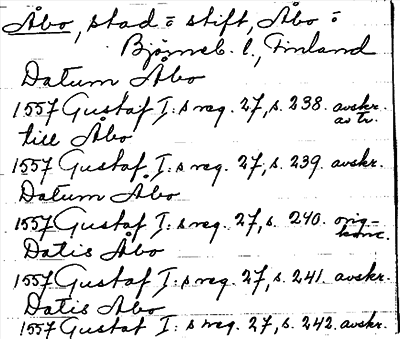 Åbo, stad = stift, Åbo =
Björneb. l., Finland
Datum Åbo
1557 Gustaf I:s reg. 27, s. 238. avskr.
av tr.
till Åbo
1557 Gustaf I:s reg. 27, s. 239. avskr.
Datum Åbo
1557 Gustaf I:s reg. 27, s. 240. orig-
konc.
Datis Åbo
1557 Gustaf I:s reg. 27, s. 241. avskr.
Datis Åbo
1557 Gustaf I:s reg. 27, s. 242. avskr.